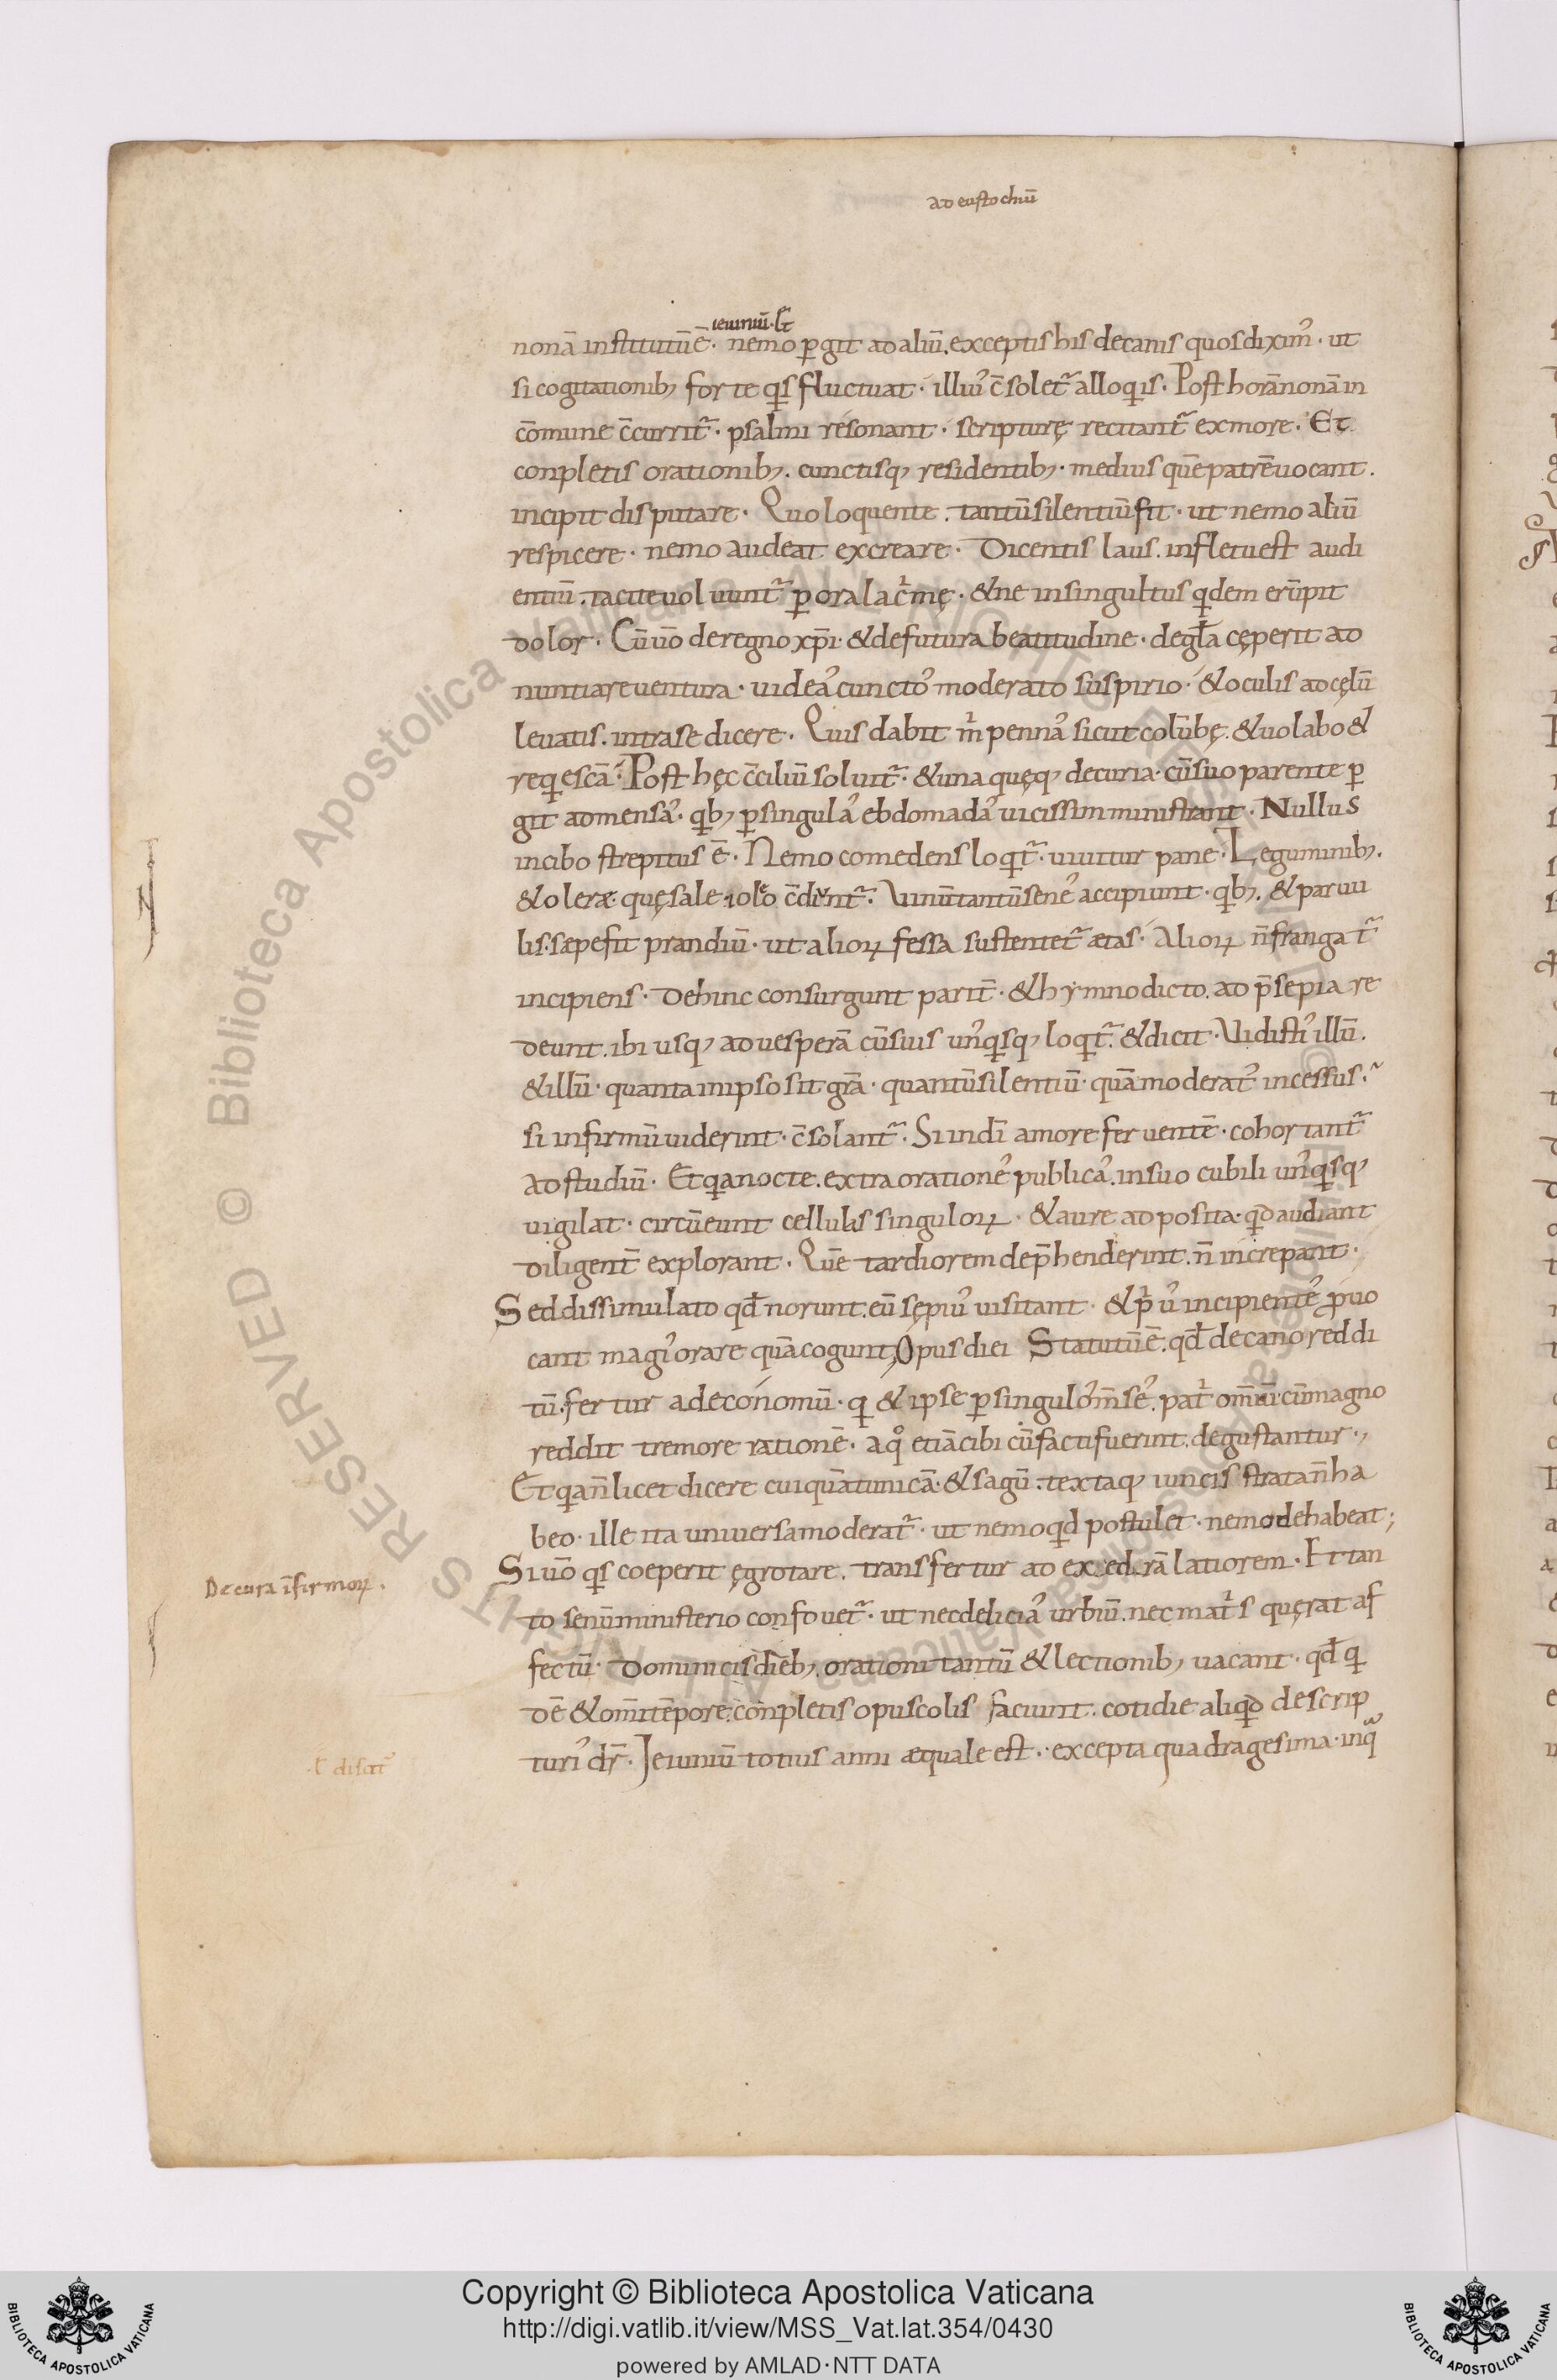 ad eustochiū
ieiuniū·
nonā institutū ē· nemo ꝑgit ad aliū. exceptis his decanis quos diximꝰ· ut
si cogitationibꝫ forte qͥs fluctuat· illiuꝰ c̄solet᷑ alloqͥis. Post horā nonā in
cōmune c̄currit᷑· psalmi resonant· scripturę recitant᷑ ex more. Et
conpletis orationibꝫ. cunctisqꝫ residentibꝫ· medius quē patrē uocant.
incipit disputare· Quo loquente. tantū silentiū fit· ut nemo aliū
respicere· nemo audeat excreare· Dicentis laus. in fletu est audi
entiū. tacite uoluunt᷑ ꝑ ora lac̓mę· & ne in singultus qͥdem erūpit
dolor· Cū u̅o de regno xp̄i· & de futura beatitudine· de gl̄a cęperit ad
nuntiare uentura· uideaꝰ cunctoꝰ moderato suspirio· & oculis ad cęlū
leuatis. intra se dicere· Quis dabit m̓ pennaꝰ sicut colūbę. & uolabo &
reqͥescā· Post hęc c̄ciliū soluit᷑· & una quęqꝫ decuria· cū suo parente ꝑ
git ad mensaꝰ· qͥbꝫ ꝑ singulaꝰ ebdomadaꝰ uicissim ministrant· Nullus
in cibo strepitus ē· Nemo comedens loqͥt᷑· uiuitur pane· Leguminibꝫ.
& olera· quę sale & oleo c̄diunt᷑· Vinū tantū seneꝰ accipiunt· qͥbꝫ. & paruu
lis. sæpe fit prandiū· ut alioꝝ fessa sustentet᷑ ætas· Alioꝝ n̄ frangat᷑
incipiens· Dehinc consurgunt parit̄· & hymno dicto. ad p̄sepia re
deunt. ibi usqꝫ ad uesperā cū suis unꝰqͥsqꝫ loqͥt᷑· & dicit· Vidistiꝰ illū.
& illū· quanta in ipso sit gr̄a· quantū silentiū· quā moderatꝰ incessus·
si infirmū uiderint· c̄solant᷑· Si in dī amore feruentē· cohortant᷑
ad studiū· Et qͥa nocte. extra orationeꝰ publicaꝰ. in suo cubili unꝰqͥsqꝫ
uigilat· circūeunt cellulas singuloꝝ· & aure adposita· qͥd audiant
diligent̄ explorant· Quē tardiorem dep̄henderint. n̄ increpant·
Sed dissimulato qd̄ norunt. eū sępiuꝰ uisitant· & p̓uꝰ incipienteꝰ ꝓuo
cant magiꝰ orare quā cogunt. Opus diei Statutū ē. qd̄ decano reddi
tū. fertur ad economū· qͥ & ipse ꝑ singuloꝰ m̄seꝰ. pat̓ omniū· cū magno
reddit tremore rationē· a qͦ etiā cibi cū facti fuerint. degustantur·,
Et qͥa n̄ licet dicere cuiquā tunicā· & sagū. textaqꝫ iuncis strata n̄ ha
beo· ille ita uniuersa moderat᷑· ut nemo qͥd postulet· nemo dehabeat;
Si u̅o qͥs coeperit ęgrotare. transfertur ad exedrā latiorem· Et tan
De cura īfirmoꝝ.
to senū ministerio confouet᷑· ut nec deliciaꝰ urbiū. nec mat̓s quęrat af
fectū· Dominicis diebꝫ. orationi tantū & lectionibꝫ uacant· qd̄ qͥ
dē & om̄i tēpore. conpletis opuscolis faciunt. cotidie aliqͥd de scrip
turiꝰ dr̄· Jeiuniū totius anni æquale est·. excepta quadragesima· in qͣ
Copyright © Biblioteca Apostolica Vaticana
http://digi.vatlib.it/view/MSS_Vat.lat.354/0430
powered by AMLAD·NTT DATA
BIBLIOTECA APOSTOLICA VATICANA
BIBLIOTECA APOSTOLICA VATICANA
© Biblioteca Apostolica Vaticana ALL RIGHTS RESERVED